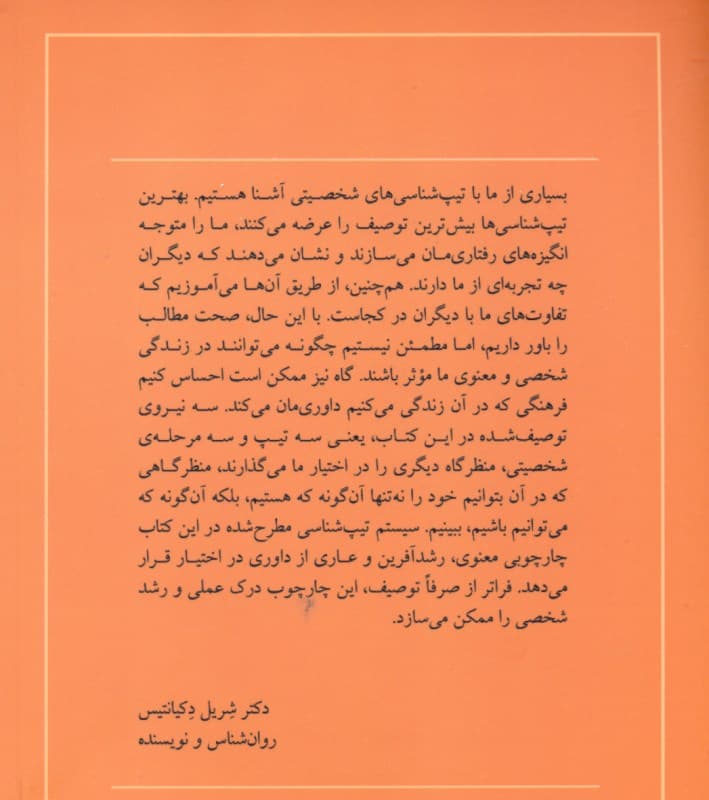 بسیاری از ما با تیپ‌شناسی‌های شخصیتی آشنا هستیم. بهترین
تیپ‌شناسی‌ها بیش‌ترین توصیف را عرضه می‌کنند، ما را متوجه
انگیزه‌های رفتاری‌مان می‌سازند و نشان می‌دهند که دیگران
چه تجربه‌ای از ما دارند. هم‌چنین، از طریق آن‌ها می‌آموزیم که
تفاوت‌های ما با دیگران در کجاست. با این حال، صحت مطالب
را باور داریم، اما مطمئن نیستیم چگونه می‌توانند در زندگی
شخصی و معنوی ما مؤثر باشند. گاه نیز ممکن است احساس کنیم
فرهنگی که در آن زندگی می‌کنیم داوری‌مان می‌کند. سه نیروی
توصیف‌شده در این کتاب، یعنی سه تیپ و سه مرحله‌ی
شخصیتی، منظرگاه دیگری را در اختیار ما می‌گذارند، منظرگاهی
که در آن بتوانیم خود را نه‌تنها آن‌گونه که هستیم، بلکه آن‌گونه که
می‌توانیم باشیم، ببینیم. سیستم تیپ‌شناسی مطرح‌شده در این کتاب
چارچوبی معنوی، رشدآفرین و عاری از داوری در اختیار قرار
می‌دهد. فراتر از صرفاً توصیف، این چارچوب درک عملی و رشد
شخصی را ممکن می‌سازد.
دکتر شِریل دِکیانتیس
روان‌شناس و نویسنده